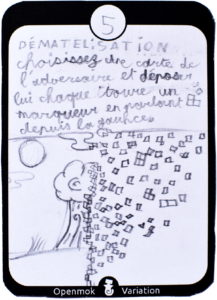 5
DÉMATELISATION
choisissez une carte de
l'adversaire et dépose
lui chaque tour un
marqueur en partant
depuis la gauche
Openmok Variation